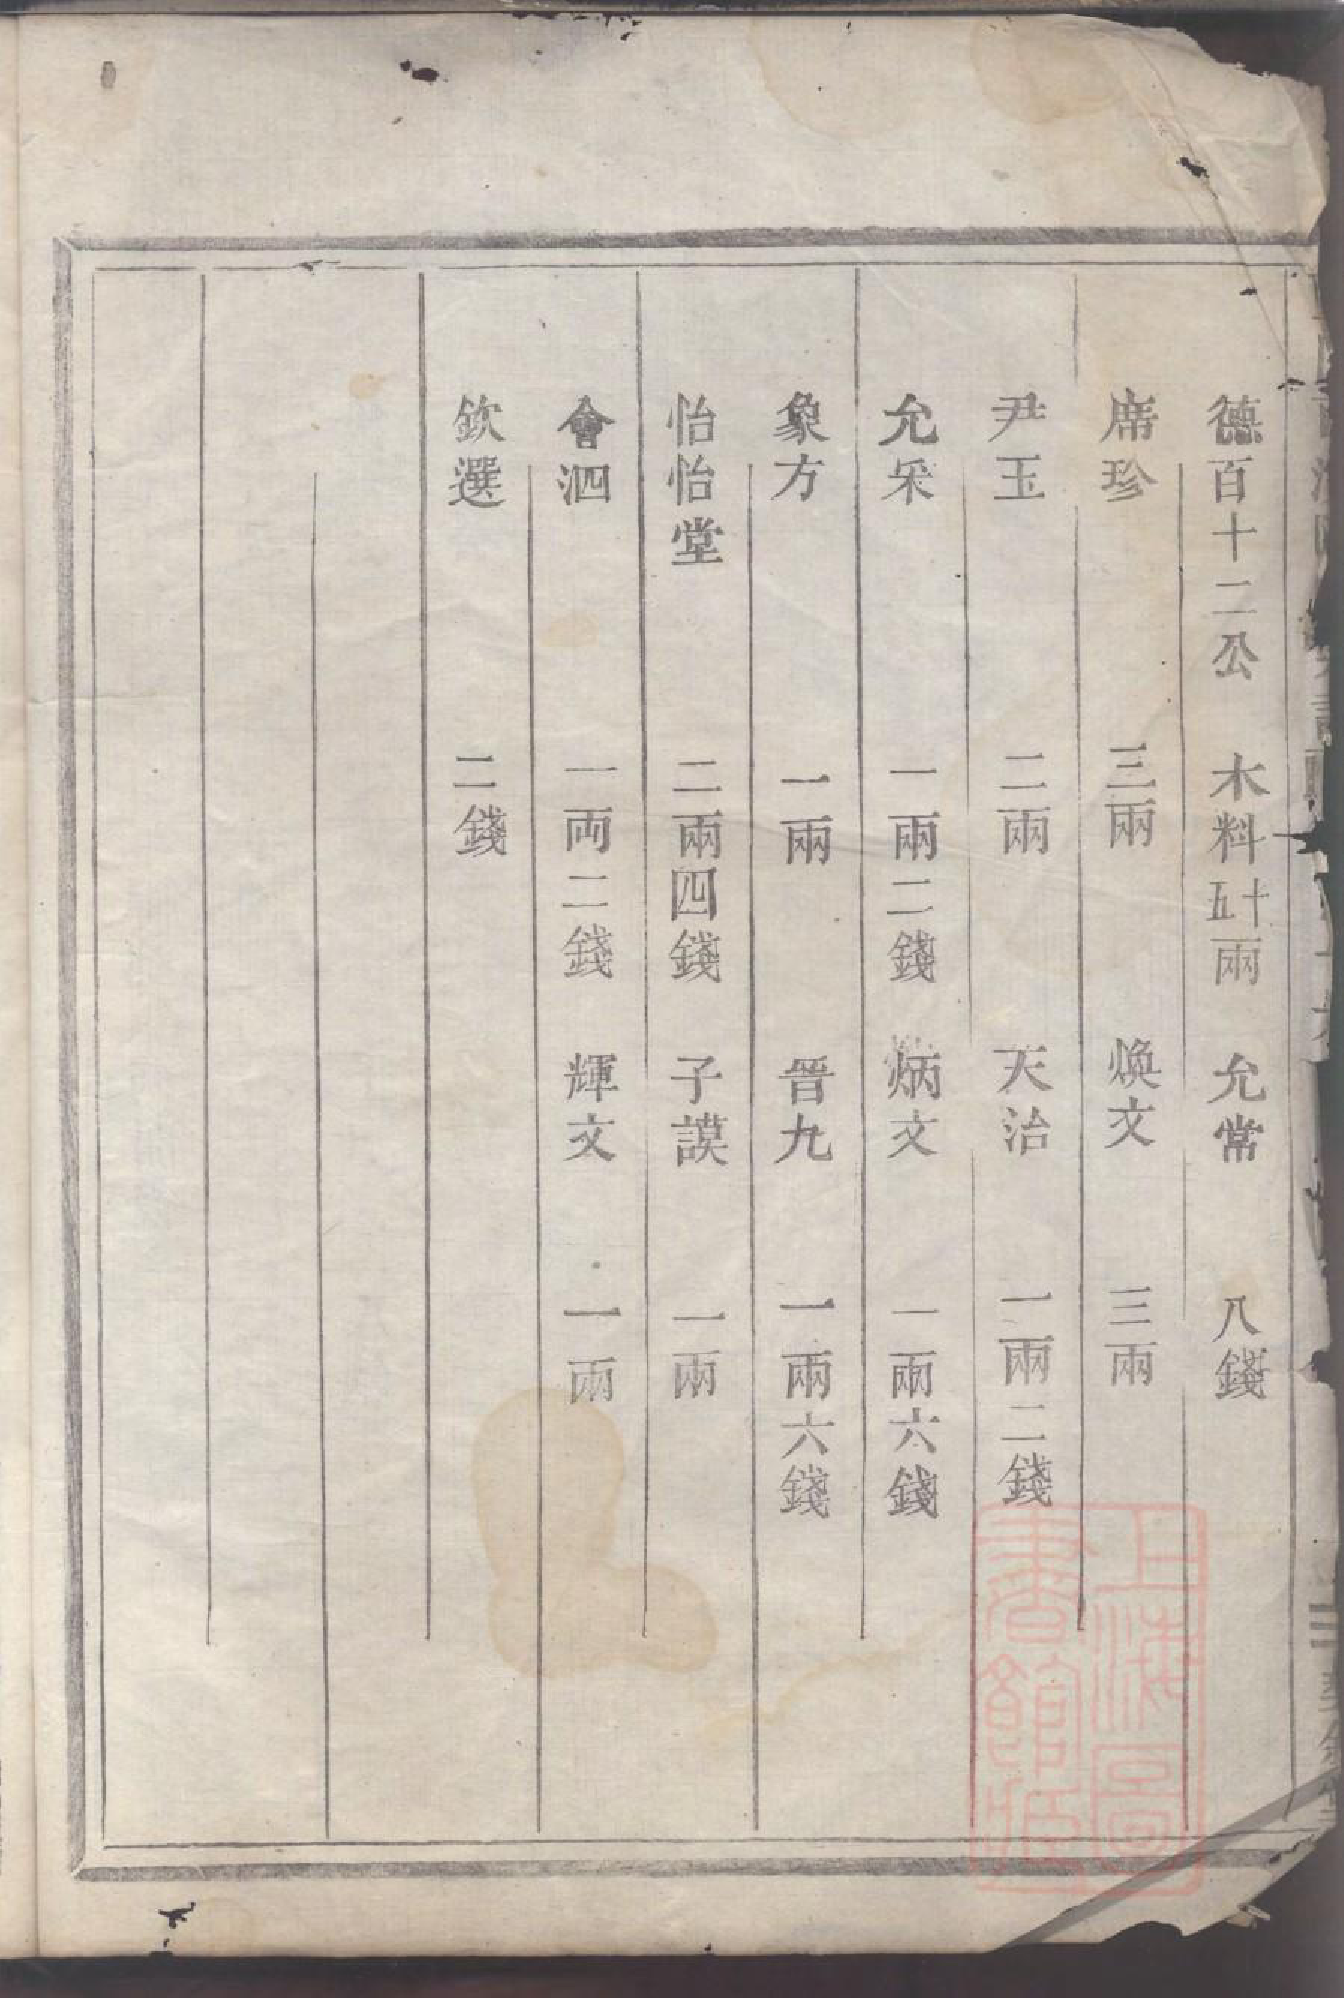 德百十二公 木料五十兩 允常 八錢
席珍 三兩 煥文 三兩
尹玉 二兩 天治 一兩二錢
允采 一兩二錢 炳文 一兩六錢
象方 一兩 晉九 一兩六錢
怡怡堂 二兩四錢 子謨 一兩
會泗 一両二錢 輝文 一兩
欽選 二錢
上海圖書館藏